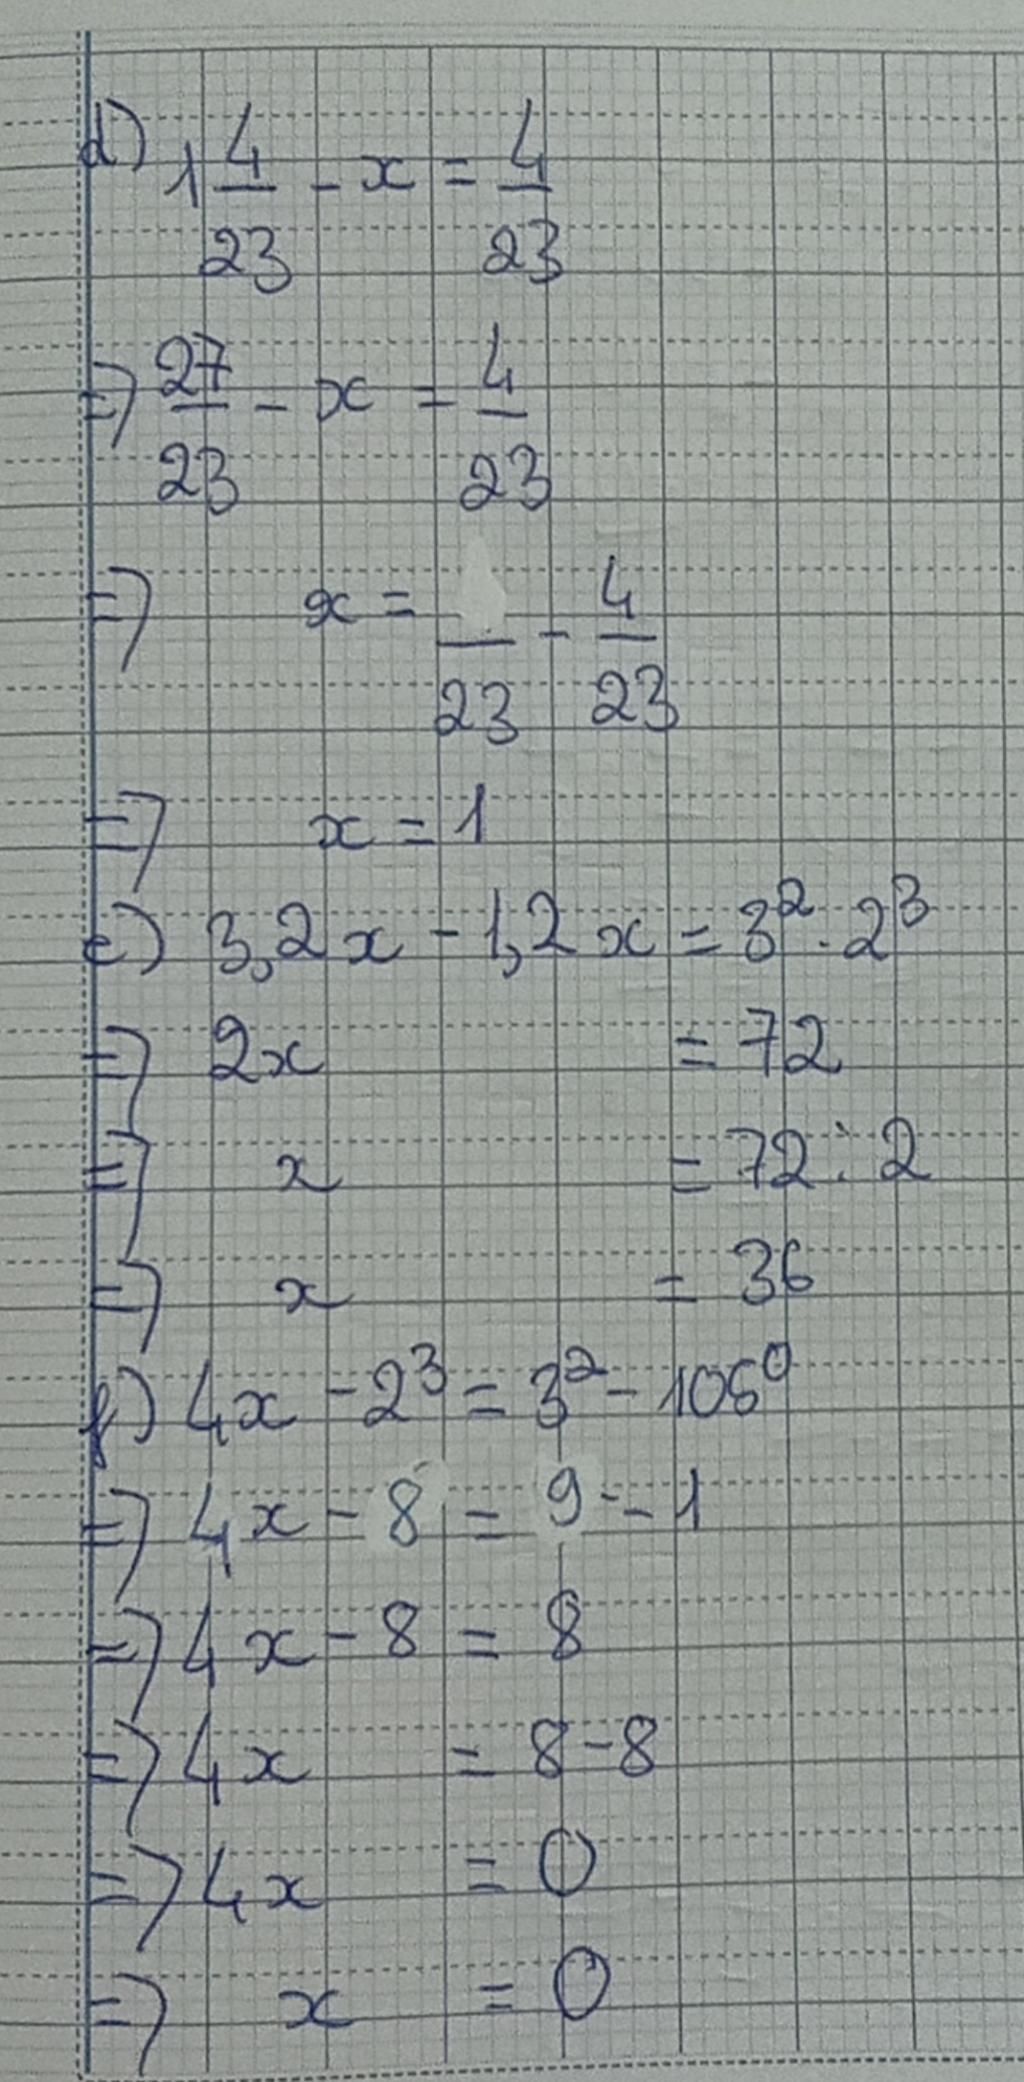 d) 1 4/23 - x = 4/23
=> 27/23 - x = 4/23
=> x = /23 - 4/23
=> x = 1
e) 3,2x - 1,2x = 3² . 2³
=> 2x = 72
=> x = 72 : 2
=> x = 36
f) 4x - 2³ = 3² - 106⁰
=> 4x - 8 = 9 - - 1
=> 4x - 8 = 8
=> 4x = 8 - 8
=> 4x = 0
=> x = 0